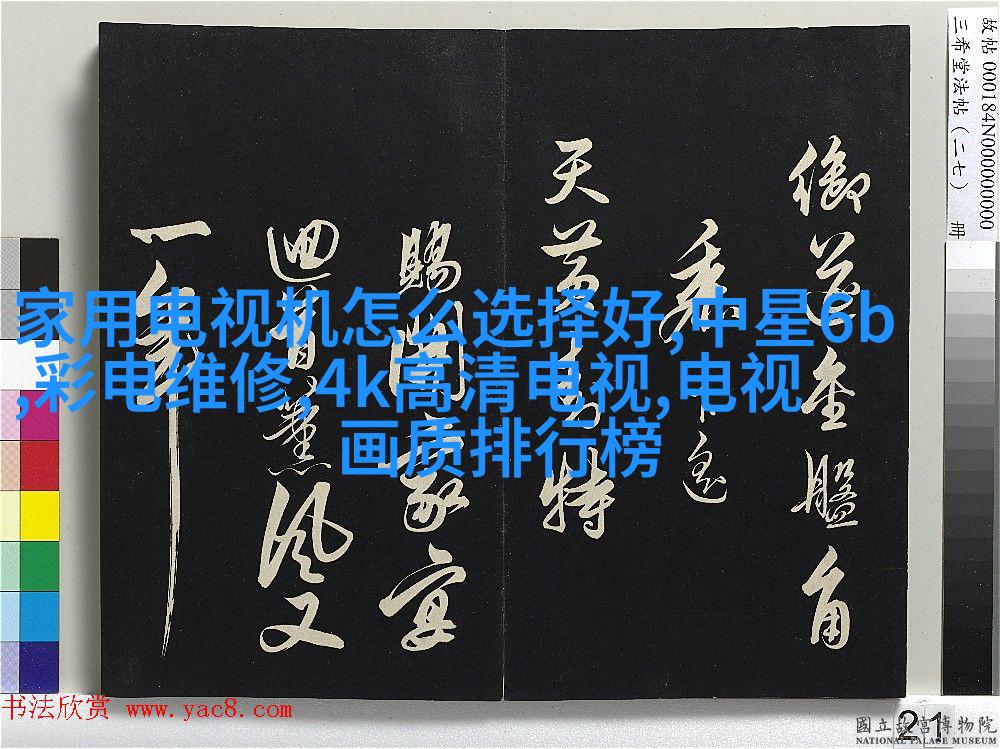 故帖 000184N000000000
三希堂法帖（二七） 冊
御 金盤角
黍
天 特
賜 家宴
迴首薰風又
一年
家用电视机怎么选择好,中星6b
,彩电维修,4k高清电视,电视
画质排行榜
书法欣赏 www.yac8.com
21
國立故宮博物院
NATIONAL PALACE MUSEUM